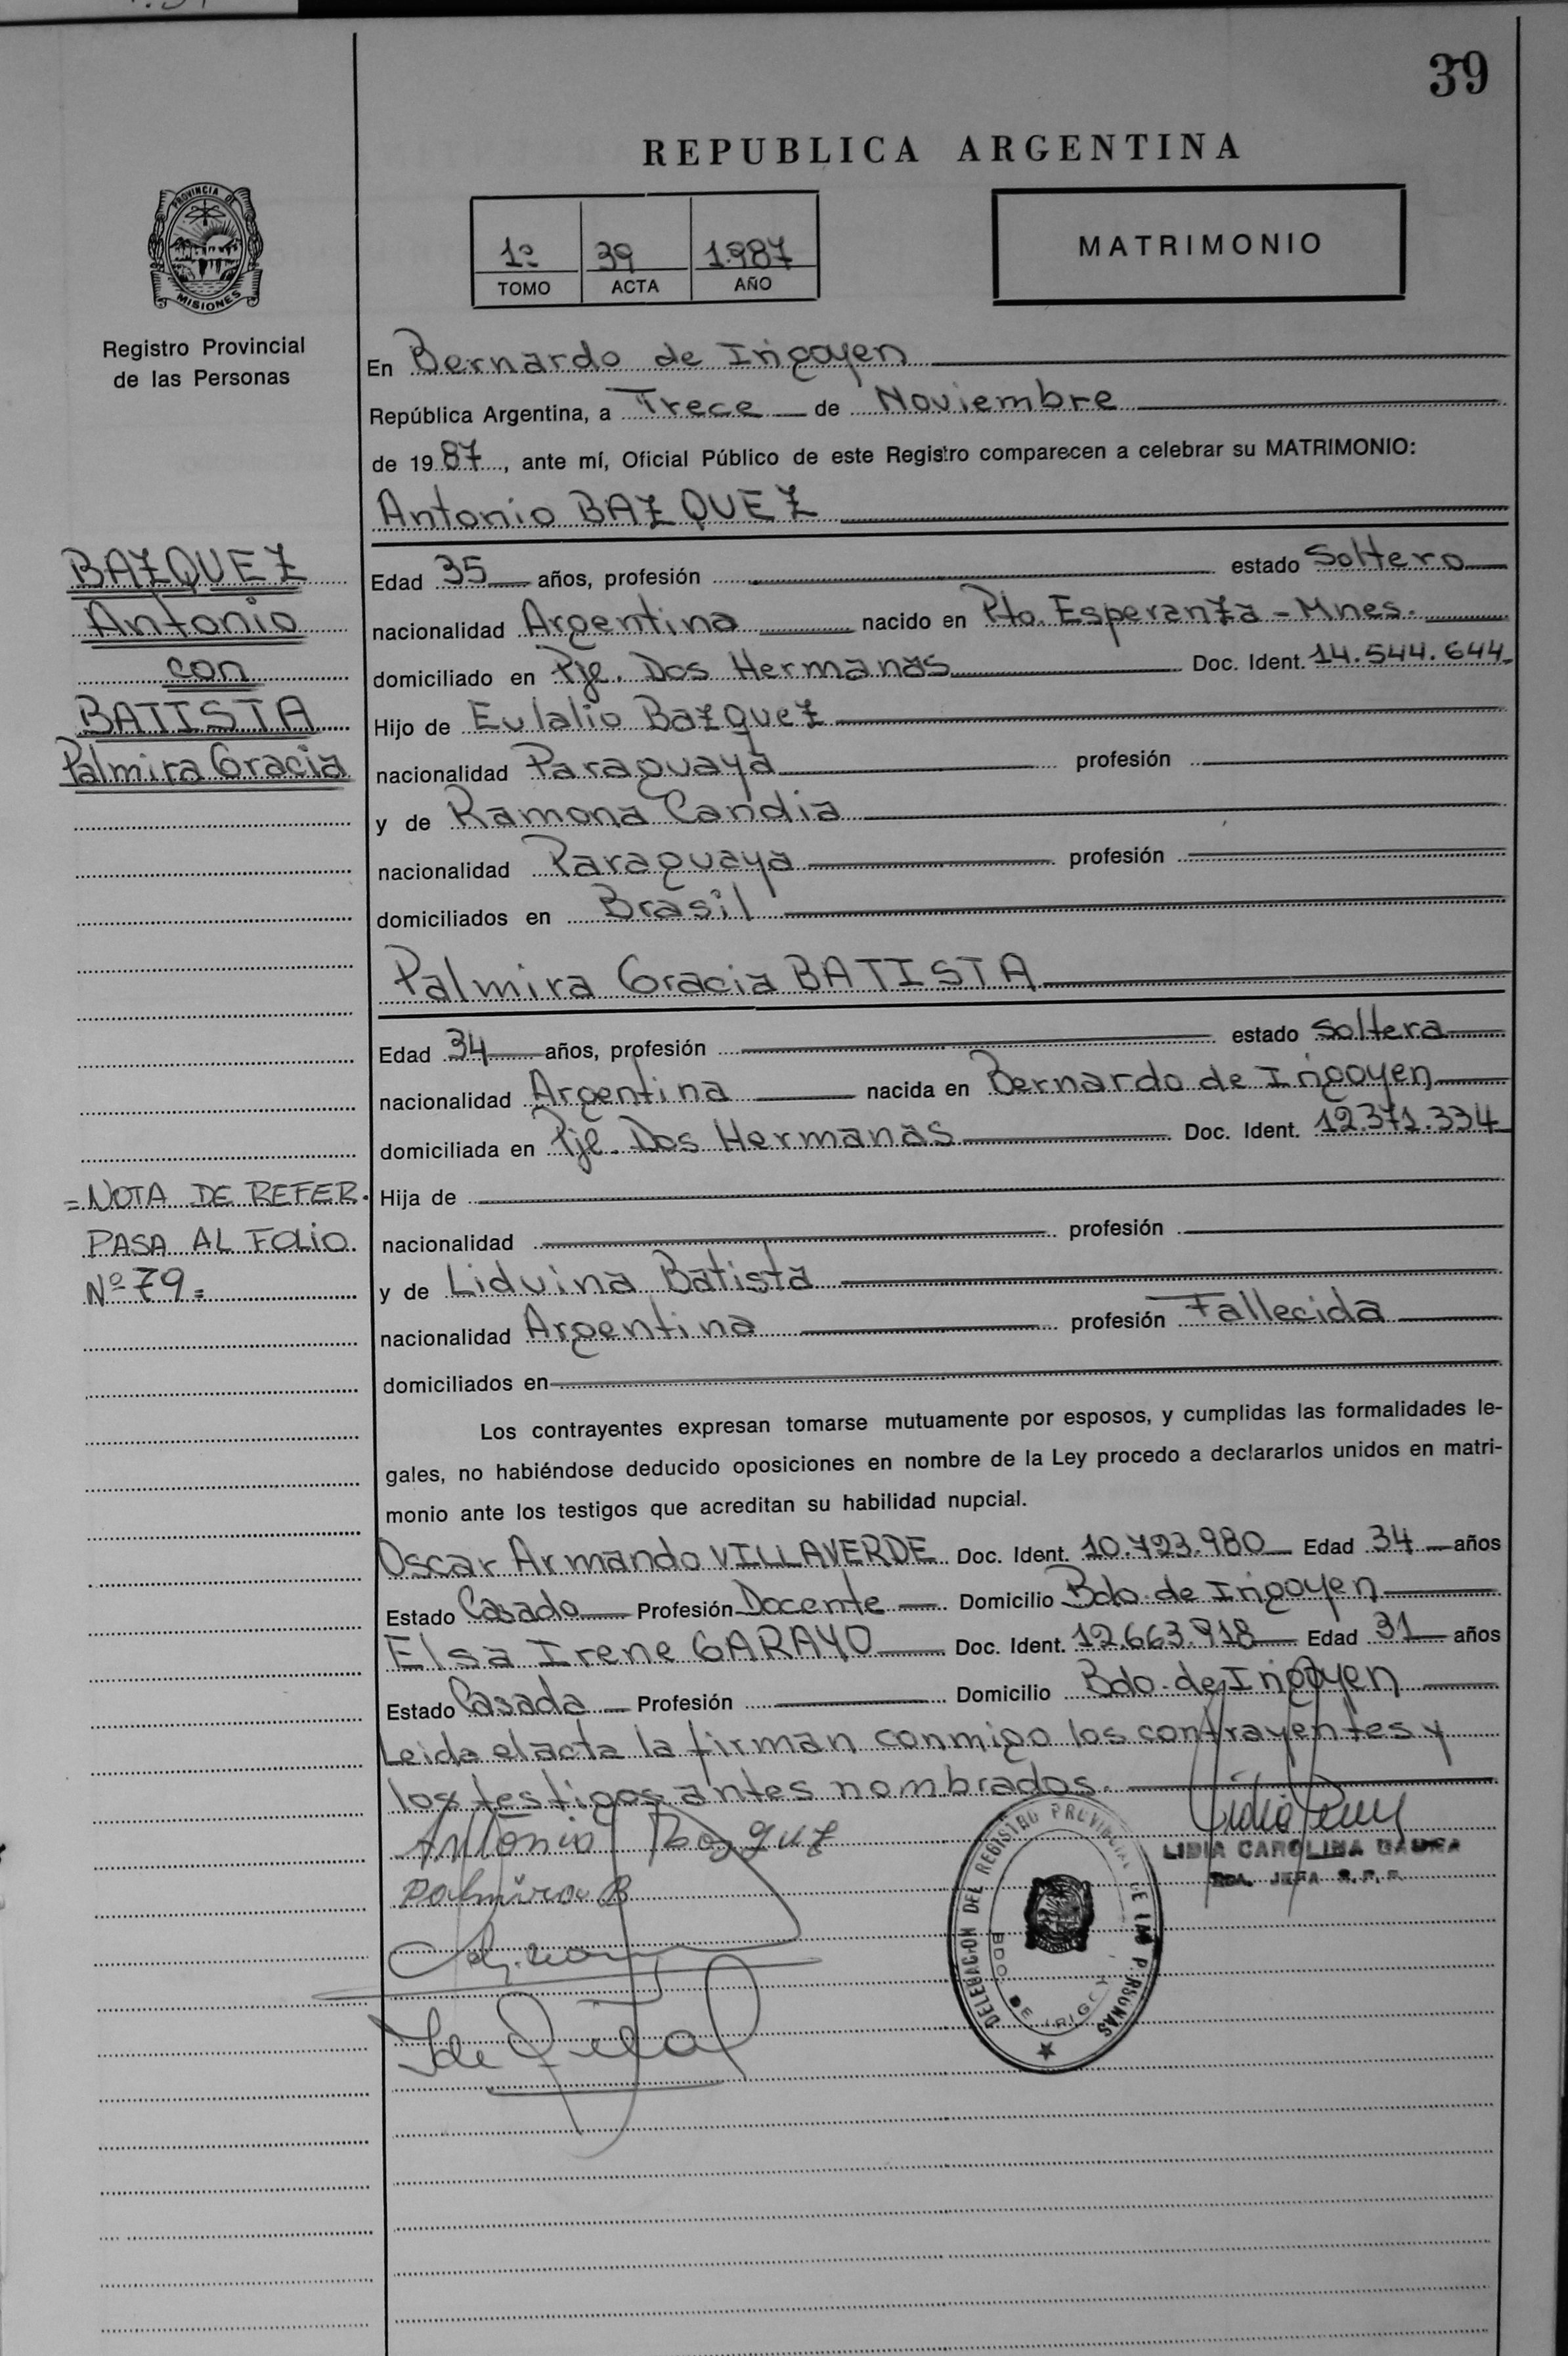 39
REPUBLICA ARGENTINA
PROVINCIA DE
MISIONES
Registro Provincial
de las Personas
1º 39 1.987
TOMO ACTA AÑO
MATRIMONIO
En Bernardo de Irigoyen
República Argentina, a Trece de Noviembre
de 19 87, ante mí, Oficial Público de este Registro comparecen a celebrar su MATRIMONIO:
Antonio BAZQUEZ
BAZQUEZ
Antonio
con
BATISTA
Palmira Gracia
Edad 35 años, profesión estado Soltero
nacionalidad Argentina nacido en Pto. Esperanza - Mnes.
domiciliado en Pje. Dos Hermanas Doc. Ident. 14.544.644
Hijo de Eulalio Bazquez
nacionalidad Paraguaya profesión
y de Ramona Candia
nacionalidad Paraguaya profesión
domiciliados en Brasil
Palmira Gracia BATISTA
Edad 34 años, profesión estado Soltera
nacionalidad Argentina nacida en Bernardo de Irigoyen
domiciliada en Pje. Dos Hermanas Doc. Ident. 12.371.334
=NOTA DE REFER.
PASA AL FOLIO
Nº 79=
Hija de
nacionalidad profesión
y de Liduina Batista
nacionalidad Argentina profesión Fallecida
domiciliados en
Los contrayentes expresan tomarse mutuamente por esposos, y cumplidas las formalidades le-
gales, no habiéndose deducido oposiciones en nombre de la Ley procedo a declararlos unidos en matri-
monio ante los testigos que acreditan su habilidad nupcial.
Oscar Armando VILLAVERDE Doc. Ident. 10.723.980 Edad 34 años
Estado Casado Profesión Docente Domicilio Bdo. de Irigoyen
Elsa Irene GARAYO Doc. Ident. 12.663.918 Edad 31 años
Estado Casada Profesión Domicilio Bdo. de Irigoyen
Leida el acta la firman conmigo los contrayentes y
los testigos antes nombrados.
Antonio Bazquez
Palmira B
LIDIA CAROLINA
JEFA R.P.P.
DELEGACION DEL REGISTRO PROVINCIAL DE LAS PERSONAS
BDO. DE IRIGOY